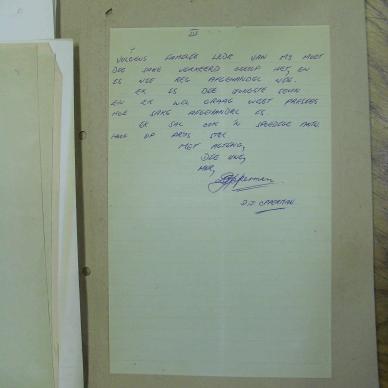 III
VOLGENS FAMILIE LEDE VAN MY MOET
DIE SAKE VERKEERD GELOOP HET, EN
ES NIE REG AFGEHANDEL NIE.
EK ES DIE JONGSTE SEUN
EN EK WIL GRAAG WEET PRESIES
HOE SAKE AFGEHANDEL ES
EK SAL OOK 'N SPOEDIGE ANTW.
HOOG OP PRYS STEL
MET AGTING,
DIE UWE,
MNR,
Opperman
D.J. OPPERMAN